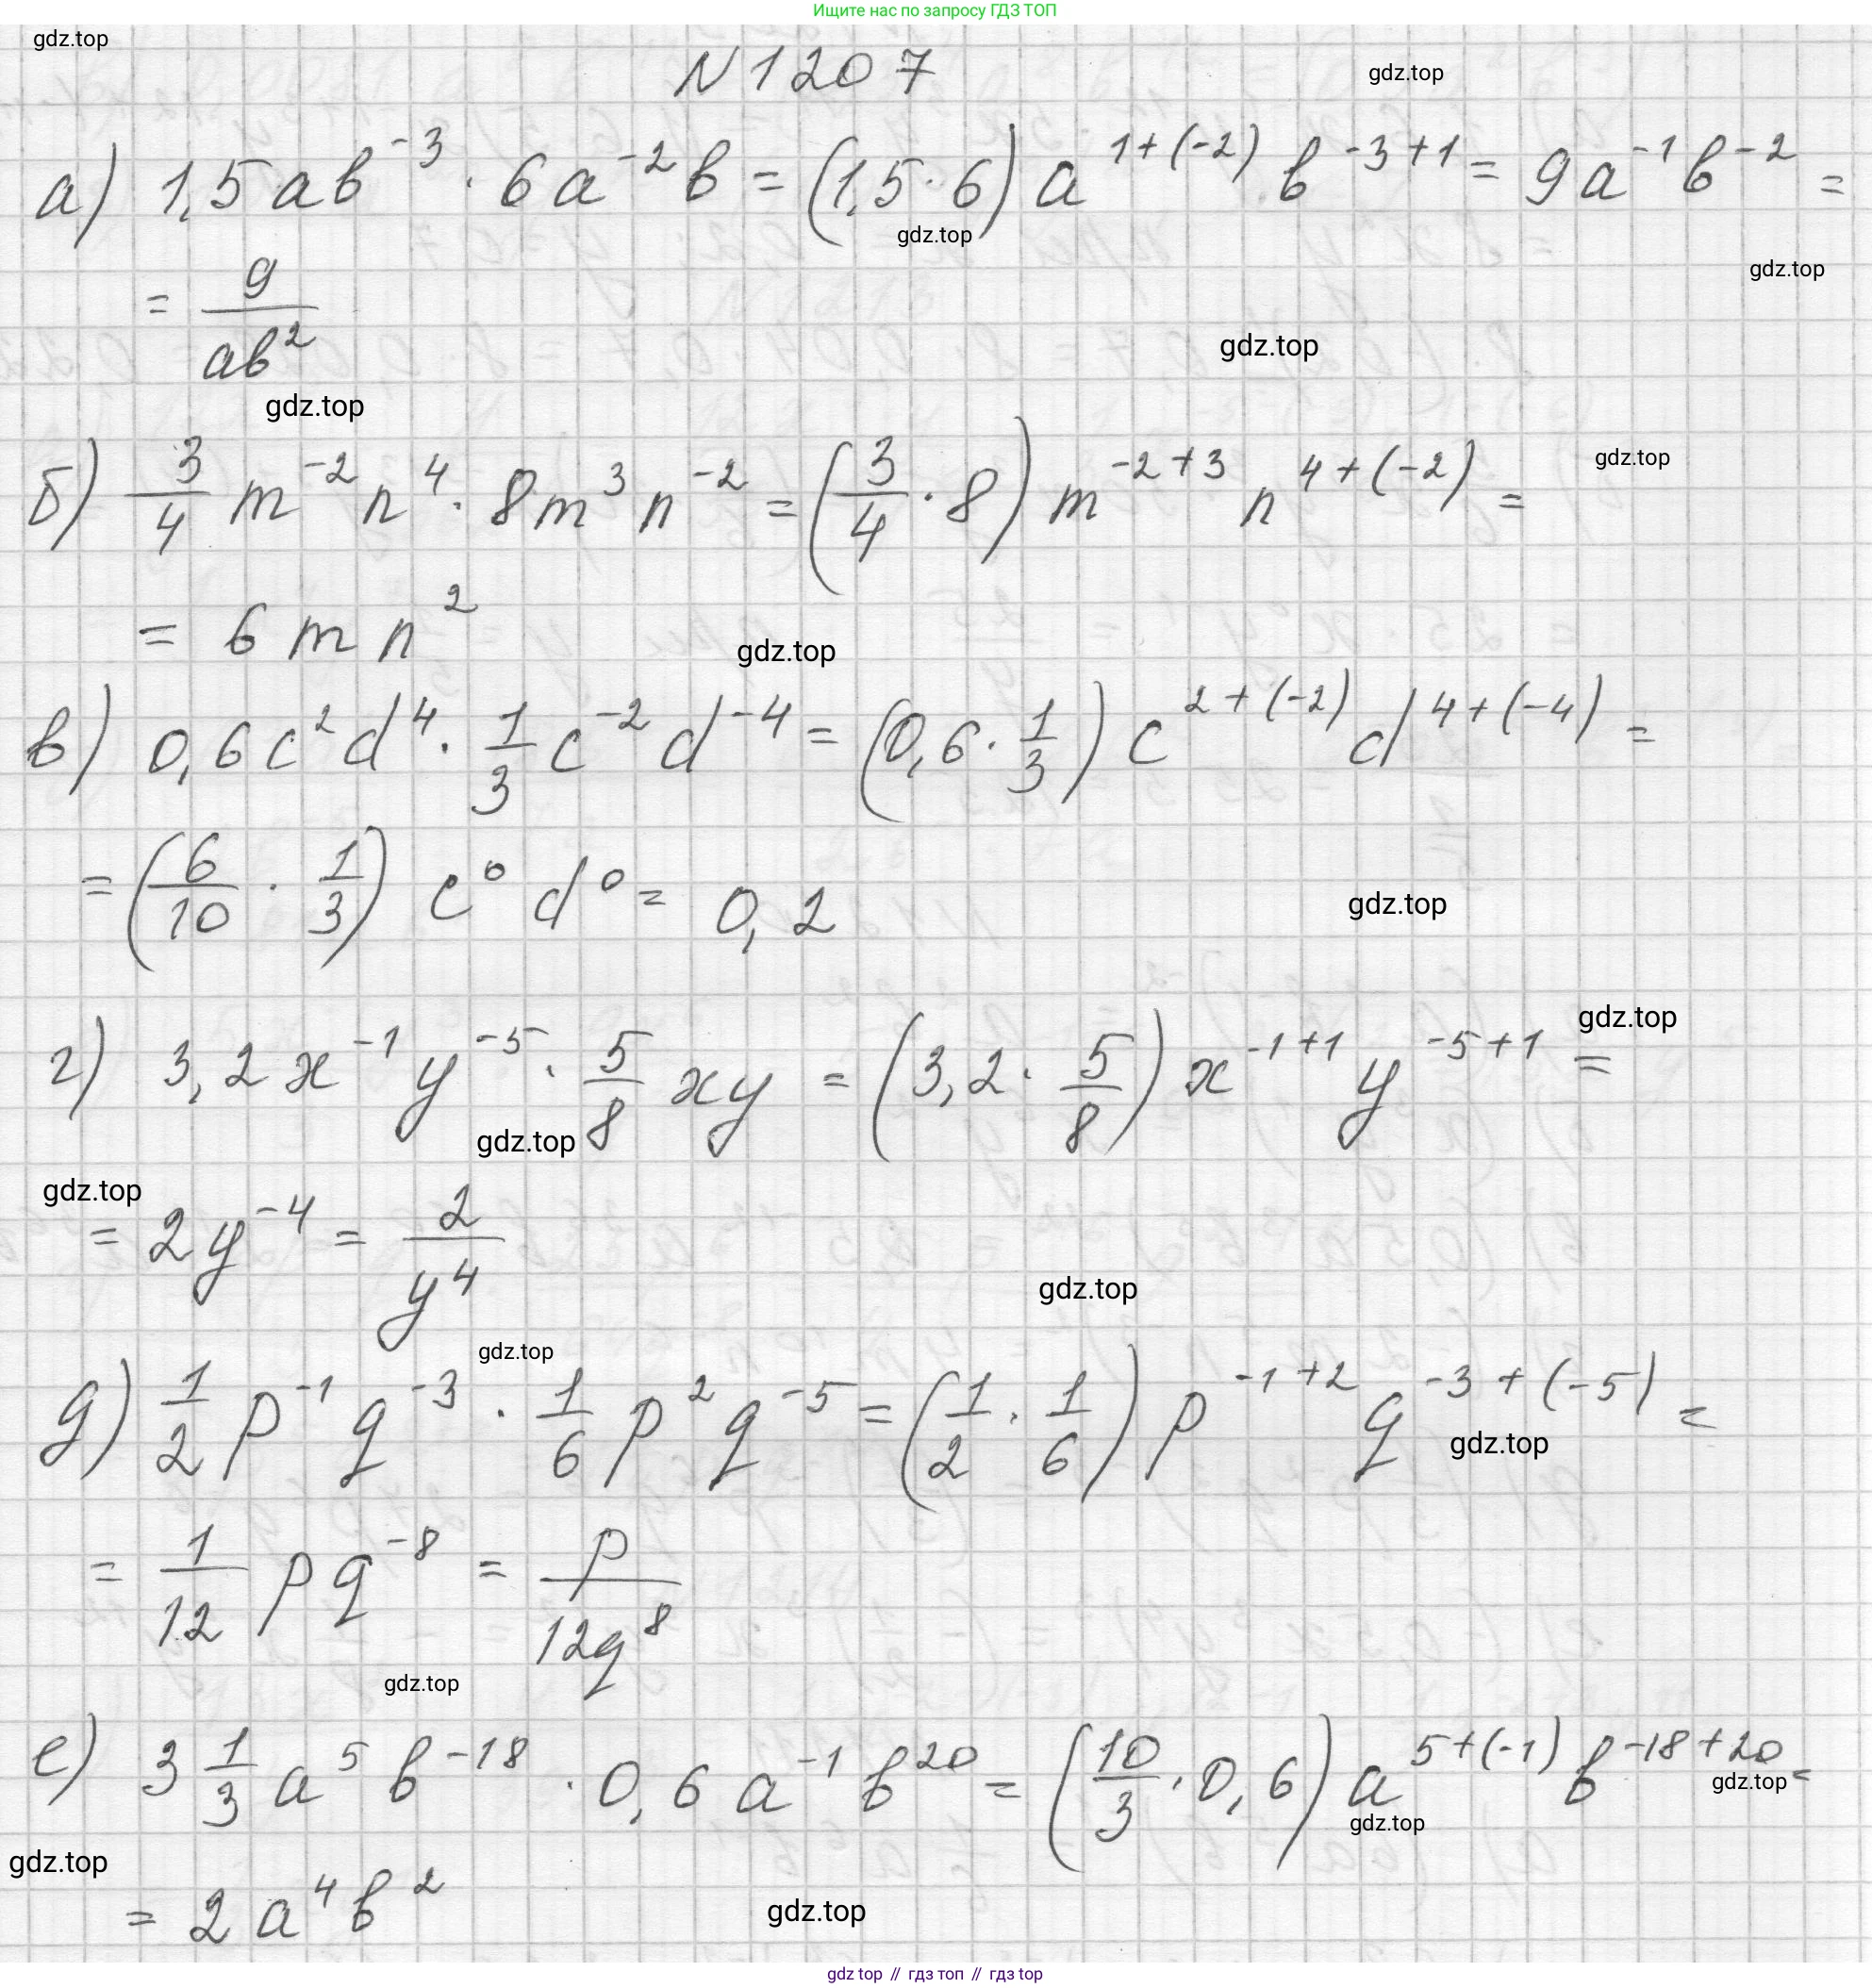 Ищите нас по запросу ГДЗ ТОП
gdz.top
N 1207
gdz.top
а) 1,5ab⁻³ · 6a⁻²b = (1,5 · 6) a¹⁺⁽⁻²⁾ b⁻³⁺¹ = 9a⁻¹b⁻² =
gdz.top
gdz.top
= 9/(ab²)
gdz.top
gdz.top
б) 3/4 m⁻²n⁴ · 8m³n⁻² = (3/4 · 8) m⁻²⁺³ n⁴⁺⁽⁻²⁾ =
gdz.top
= 6mn²
gdz.top
в) 0,6c²d⁴ · 1/3 c⁻²d⁻⁴ = (0,6 · 1/3) c²⁺⁽⁻²⁾ d⁴⁺⁽⁻⁴⁾ =
= (6/10 · 1/3) c⁰ d⁰ = 0,2
gdz.top
gdz.top
г) 3,2x⁻¹y⁻⁵ · 5/8 xy = (3,2 · 5/8) x⁻¹⁺¹ y⁻⁵⁺¹ =
gdz.top
gdz.top
= 2y⁻⁴ = 2/y⁴
gdz.top
gdz.top
д) 1/2 p⁻¹q⁻³ · 1/6 p²q⁻⁵ = (1/2 · 1/6) p⁻¹⁺² q⁻³⁺⁽⁻⁵⁾ =
gdz.top
= 1/12 pq⁻⁸ = p/(12q⁸)
gdz.top
е) 3 1/3 a⁵b⁻¹⁸ · 0,6a⁻¹b²⁰ = (10/3 · 0,6) a⁵⁺⁽⁻¹⁾ b⁻¹⁸⁺²⁰ =
gdz.top
gdz.top
gdz.top
= 2a⁴b²
gdz.top
gdz top // гдз топ // гдз top